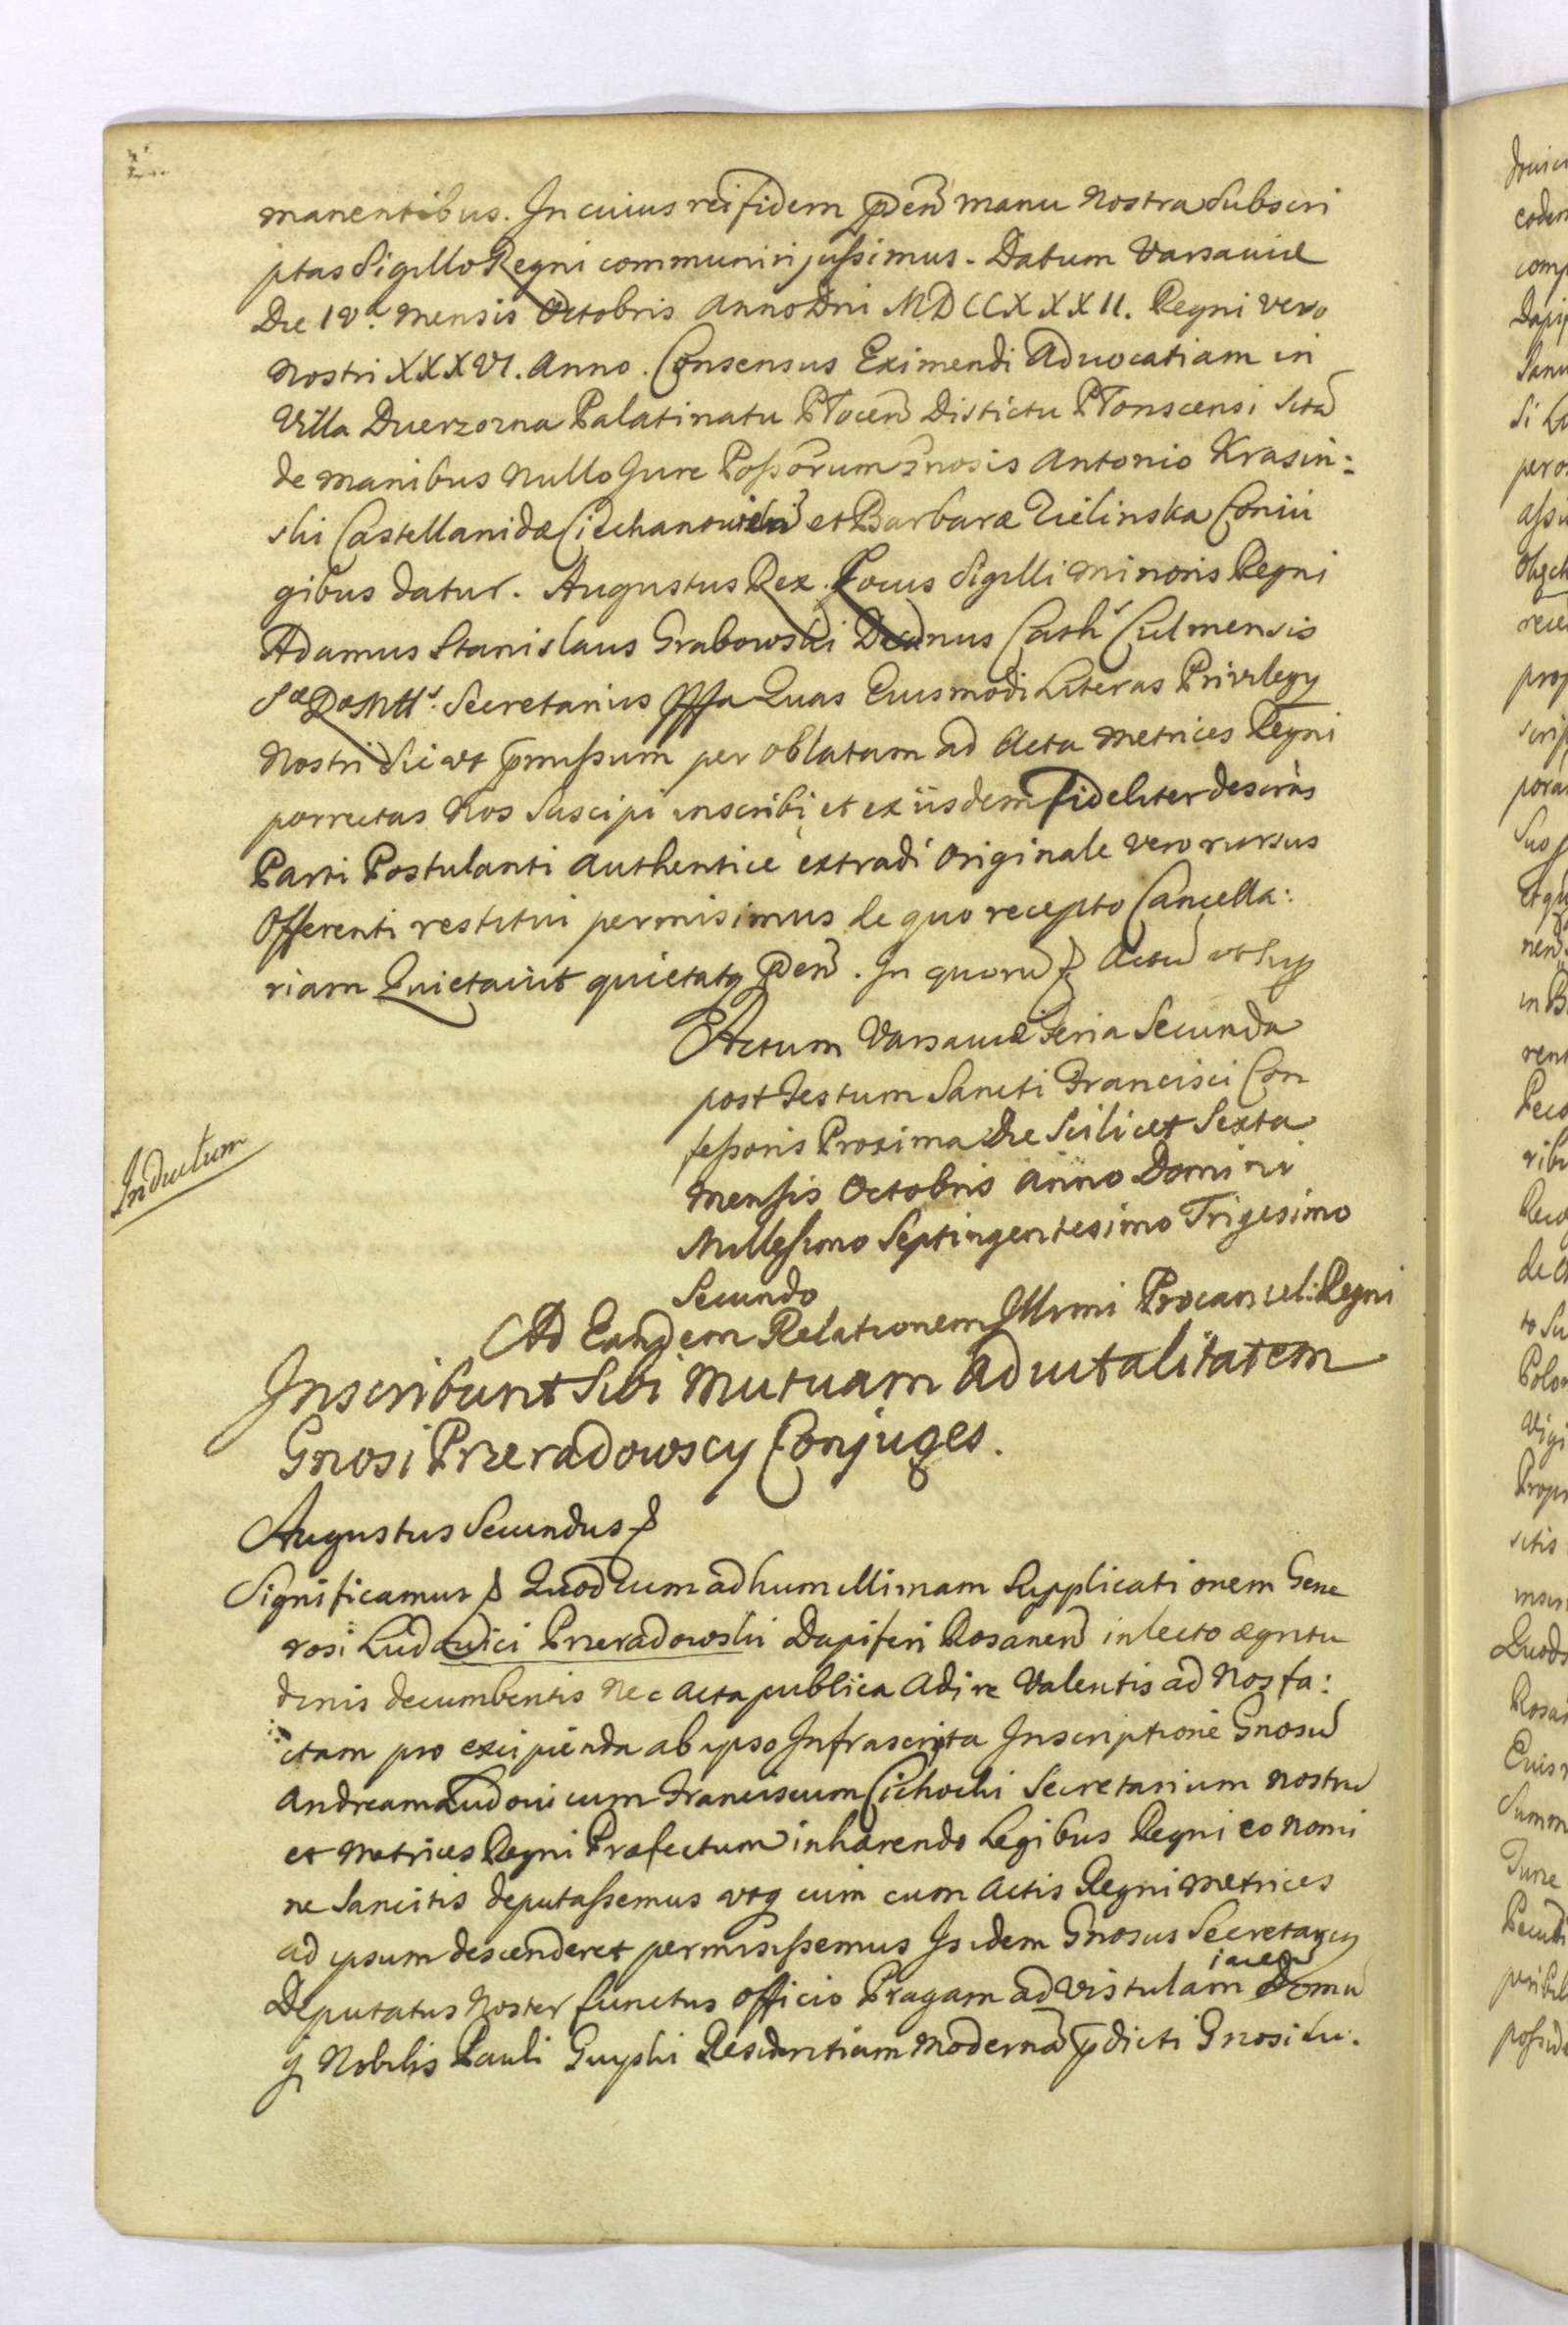 manentibus. In cuius rei fidem pden manu Nostra Subscri
ptas Sigillo Regni communiri jussimus. Datum Varsaviæ
Die IVa. Mensis Octobris Anno Dni MDCCXXXII. Regni vero
Nostri XXXVI. Anno. Consensus Eximendi Advocatiam in
Villa Duerzorna Palatinatu Plocen Distictu Plonscensi Sitã
de manibus nullo Jure Possorum Gnosis Antonio Krasin:
ski Castellanidæ Ciechanovien et Barbaræ Zielinska Coniu
gibus datur. Augustus Rex. Locus Sigilli minoris Regni
Adamus Stanislaus Grabowski Decanus Cathl Culmensis
Sæ Ræ Mttis. Secretarius Quas Eiusmodi Literas Privilegy
Nostri Sic ut pmissum per oblatam ad Acta Metrices Regni
porrectas Nos Suscipi inscribi et ex iisdem fideliter descrās
Parti Postulanti authentice extradi Originale vero rursus
Offerenti restitui permisimus de quo recepto Cancella:
riam Quietavit quietatq pden. In quorũ & Actũ ut Sup
Actum Varsaviæ Feria Secunda
post Festum Sancti Francisci Con
fessoris Proxima die Scilicet Sexta
Mensis Octobris Anno Domini
Millesimo Septingentesimo Trigesimo
Secundo
Inductum
Ad Eandem Relationem Illrmi Procancel: Regni
Inscribunt Sibi Mutuam advitalitatem
Gnosi Przeradowscy Conjuges.
Augustus Secundus &
Significamus & Quod cum ad humillimam Supplicationem Gene
rosi Ludovici Przeradowski Dapiferi Rosanen in lecto ægritu
dinis decumbentis nec acta publica adire Valentis ad Nos fa:
ctam pro excipienda ab ipso Infrascripta Inscriptione Gnosũ
Andream Ludovicum Franciscum Cichocki Secretarium Nostrũ
et Metrices Regni Præfectum inhærendo Legibus Regni eo nomi
ne Sancitis deputassemus utq cum cum Actis Regni Metrices
ad ipsum descenderet permisissemus Isidem Gnosus Secretarius
Deputatus Noster functus officio Pragam ad Vistulam iacen Domũ
q Nobilis Pauli Guyski Residentiam modernã pdicti Gnosi Lu.